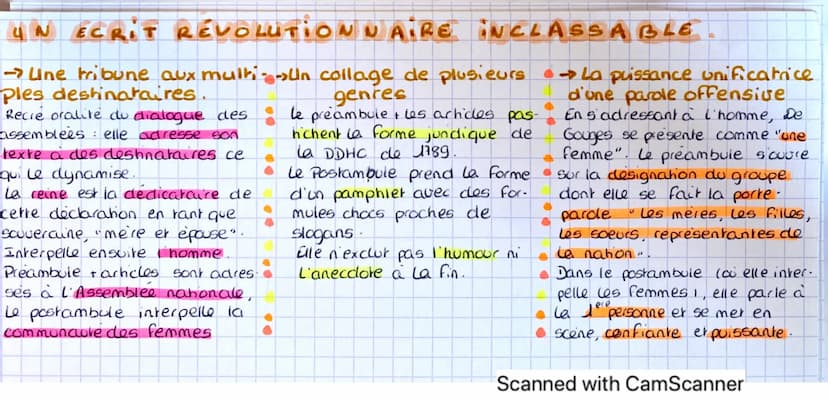 UN ECRIT RÉVOLUTIONNAIRE INCLASSABLE.
→ Une tribune aux multi-
ples destinataires.
Recrée oralité du dialogue des
assemblées : elle adresse son
texte à des destinataires ce
qui le dynamise.
La reine est la dédicataire de
cette déclaration en tant que
souveraine, "mère et épouse".
Interpelle ensuite l'homme.
Préambule + articles sont adres-
sés à l'Assemblée nationale,
Le postambule interpelle la
communauté des femmes
→ Un collage de plusieurs
genres
Le préambule + les articles pas-
tichent la forme juridique de
la DDHC de 1789.
Le Postambule prend la forme
d'un pamphlet avec des for-
mules chocs proches de
slogans.
Elle n'exclut pas l'humour ni
l'anecdote à la fin.
→ La puissance unificatrice
d'une parole offensive
En s'adressant à l'homme, De
Gouges se présente comme "une
femme". Le préambule s'ouvre
sur la désignation du groupe
dont elle se fait la porte-
parole "Les mères, les filles,
les soeurs, représentantes de
la nation".
Dans le postambule (où elle inter-
pelle les femmes), elle parle à
la 1ère personne et se met en
scène, confiante et puissante.
Scanned with CamScanner